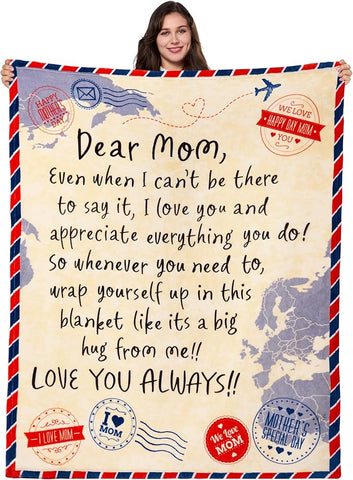 HAPPY
MOTHER'S
DAY
WE LOVE
HAPPY DAY MOM
YOU
Dear Mom,
Even when I can't be there
to say it, I love you and
appreciate everything you do!
So whenever you need to,
wrap yourself up in this
blanket like its a big
hug from me!!
LOVE YOU ALWAYS!!
I LOVE MOM
I ♥
MOM
We Love
MOM
MOTHER'S
SPECIAL DAY